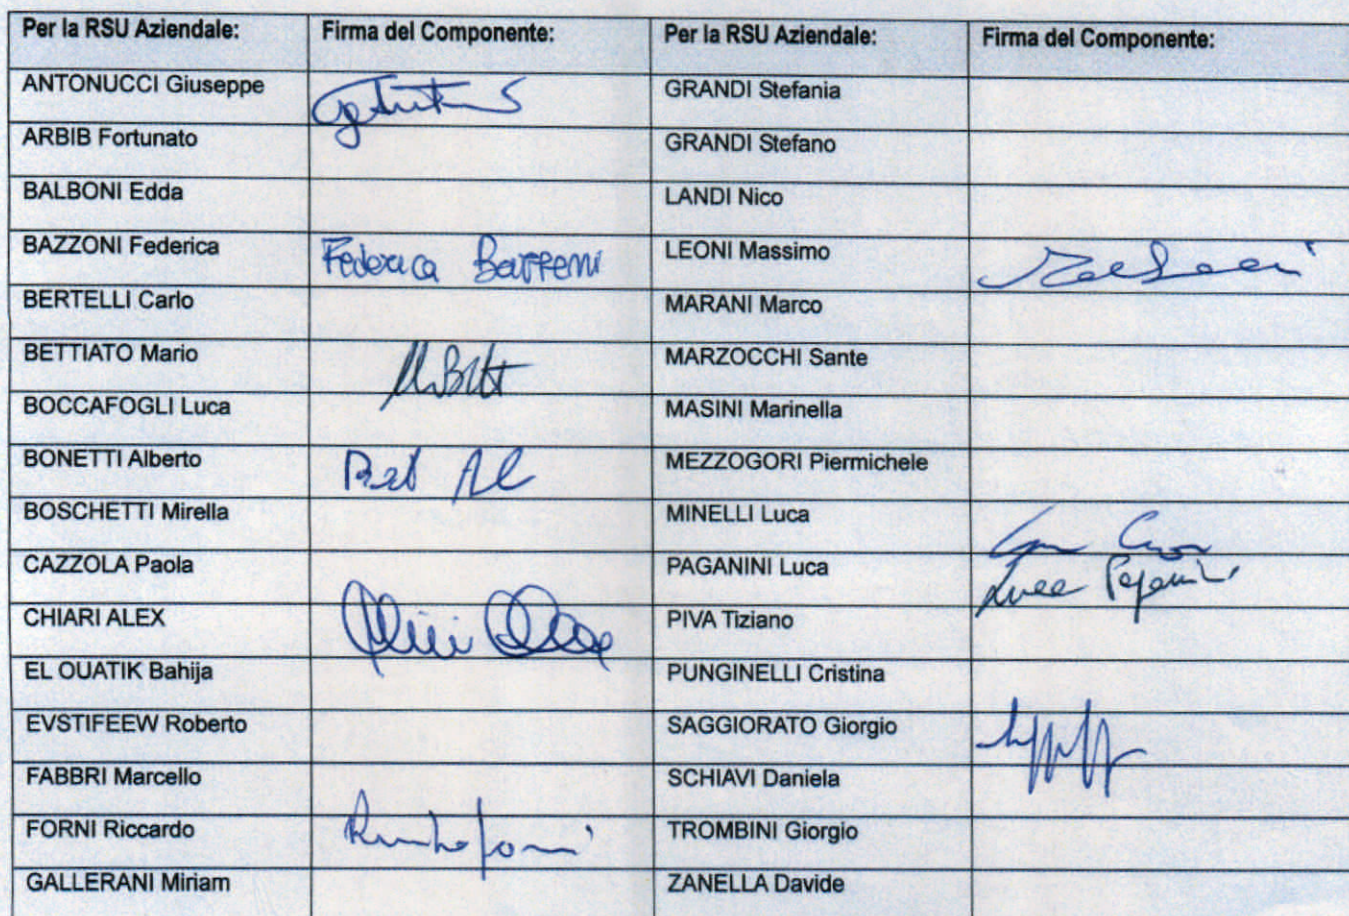 Per la RSU Aziendale: Firma del Componente: Per la RSU Aziendale: Firma del Componente:
ANTONUCCI Giuseppe GRANDI Stefania
ARBIB Fortunato GRANDI Stefano
BALBONI Edda LANDI Nico
BAZZONI Federica Federica Bazzoni LEONI Massimo
BERTELLI Carlo MARANI Marco
BETTIATO Mario MARZOCCHI Sante
BOCCAFOGLI Luca MASINI Marinella
BONETTI Alberto MEZZOGORI Piermichele
BOSCHETTI Mirella MINELLI Luca
CAZZOLA Paola PAGANINI Luca Luca Paganini
CHIARI ALEX PIVA Tiziano
EL OUATIK Bahija PUNGINELLI Cristina
EVSTIFEEW Roberto SAGGIORATO Giorgio
FABBRI Marcello SCHIAVI Daniela
FORNI Riccardo TROMBINI Giorgio
GALLERANI Miriam ZANELLA Davide